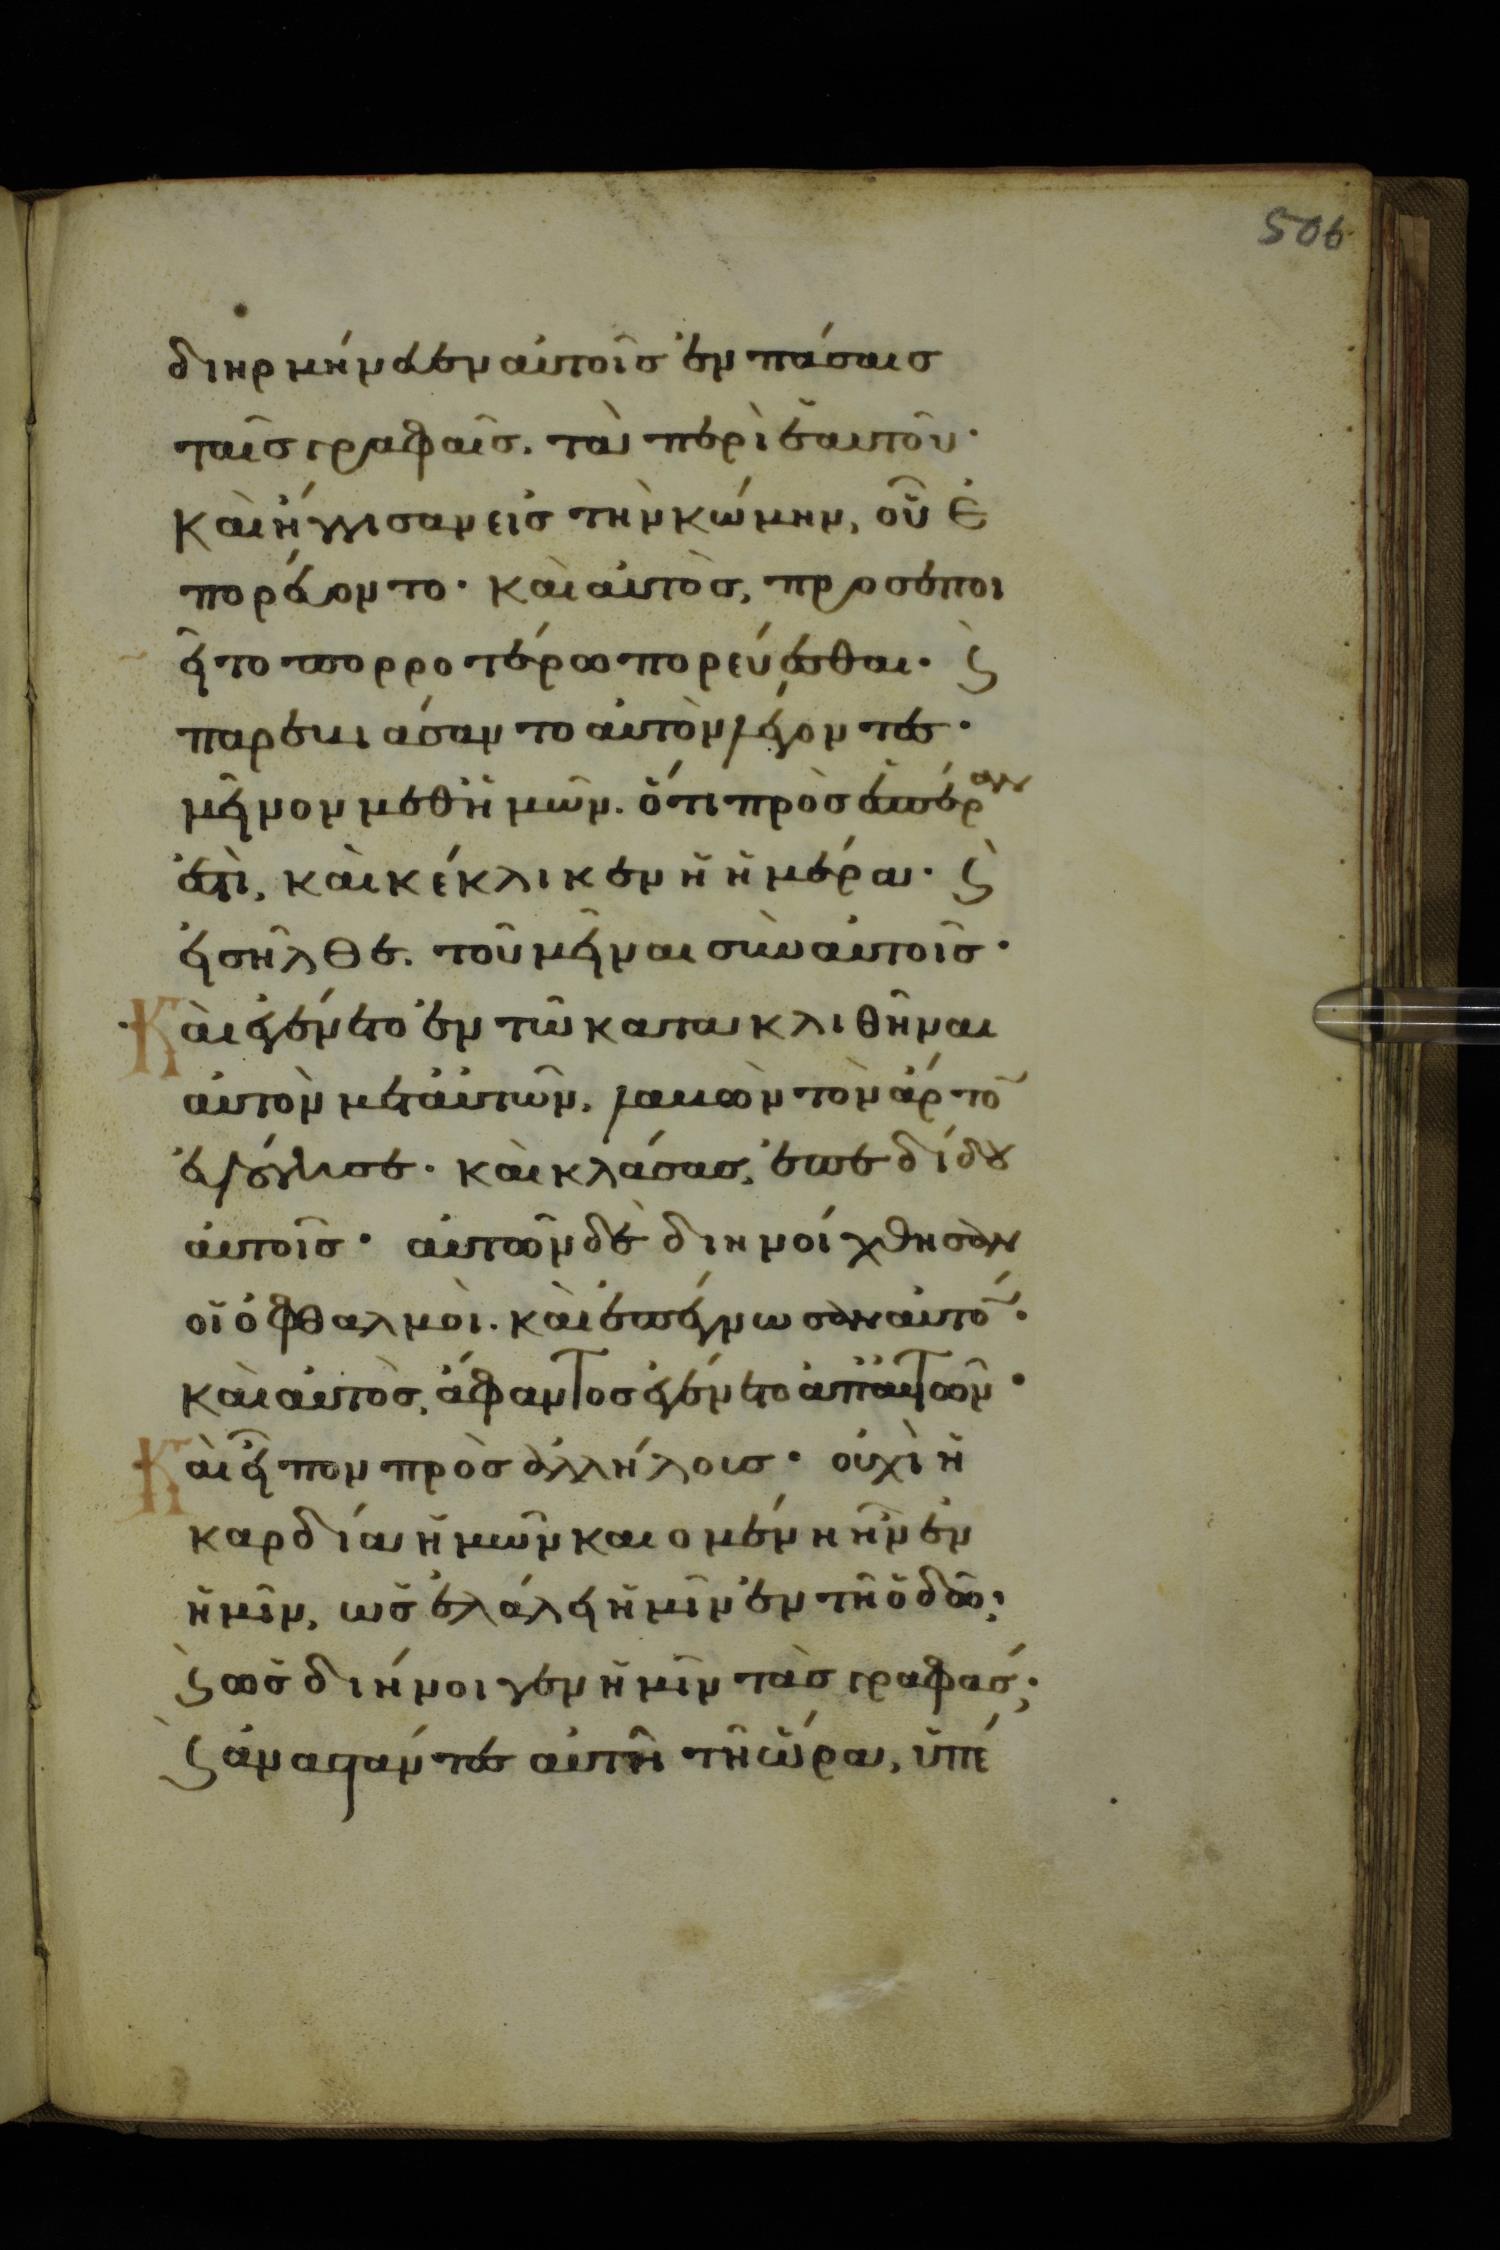 506
διηρμήνευεν αὐτοῖς ἐν πάσαις
ταῖς γραφαῖς. τὰ περὶ ἑαυτοῦ·
Καὶ ἤγγισαν εἰς τὴν κώμην, οὗ ἐ
πορεύοντο· καὶ αὐτὸς, προσεποι
εῖτο πορροτέρω πορεύεσθαι· ϛ̀
παρεβιάσαντο αὐτὸν λέγοντες·
μεῖνον μεθ ἡμῶν. ὅτι πρὸς ἑσπέραν
ἐστὶ, καὶ κέκλικεν ἡ ἡμέρα· ϛ̀
εἰσῆλθε. τοῦ μεῖναι σὺν αὐτοῖς·
Καὶ ἐγένετο ἐν τῶ κατακλιθῆναι
αὐτὸν μετ αὐτῶν, λαβὼν τὸν ἄρτο̅
εὐλόγησε· καὶ κλάσας, ἐπεδίδου
αὐτοῖς· αὐτῶν δὲ διηνοίχθησαν
οἱ ὀφθαλμοὶ. καὶ ἐπέγνωσαν αὐτό̅·
καὶ αὐτὸς, ἄφαντος ἐγένετο ἀπ αὐτῶν·
Καὶ εἶπον πρὸς ἀλλήλους· οὐχὶ ἡ
καρδία ἡμῶν καιομένη ἦν ἐν
ἡμῖν, ὡς ἐλάλει ἡμῖν ἐν τῆ ὁδῶ;
ϛ̀ ὡς διήνοιγεν ἡμῖν τὰς γραφάς;
ϛ̀ ἀναστάντες αὐτῆ τῆ ὥρα, ὑπέ